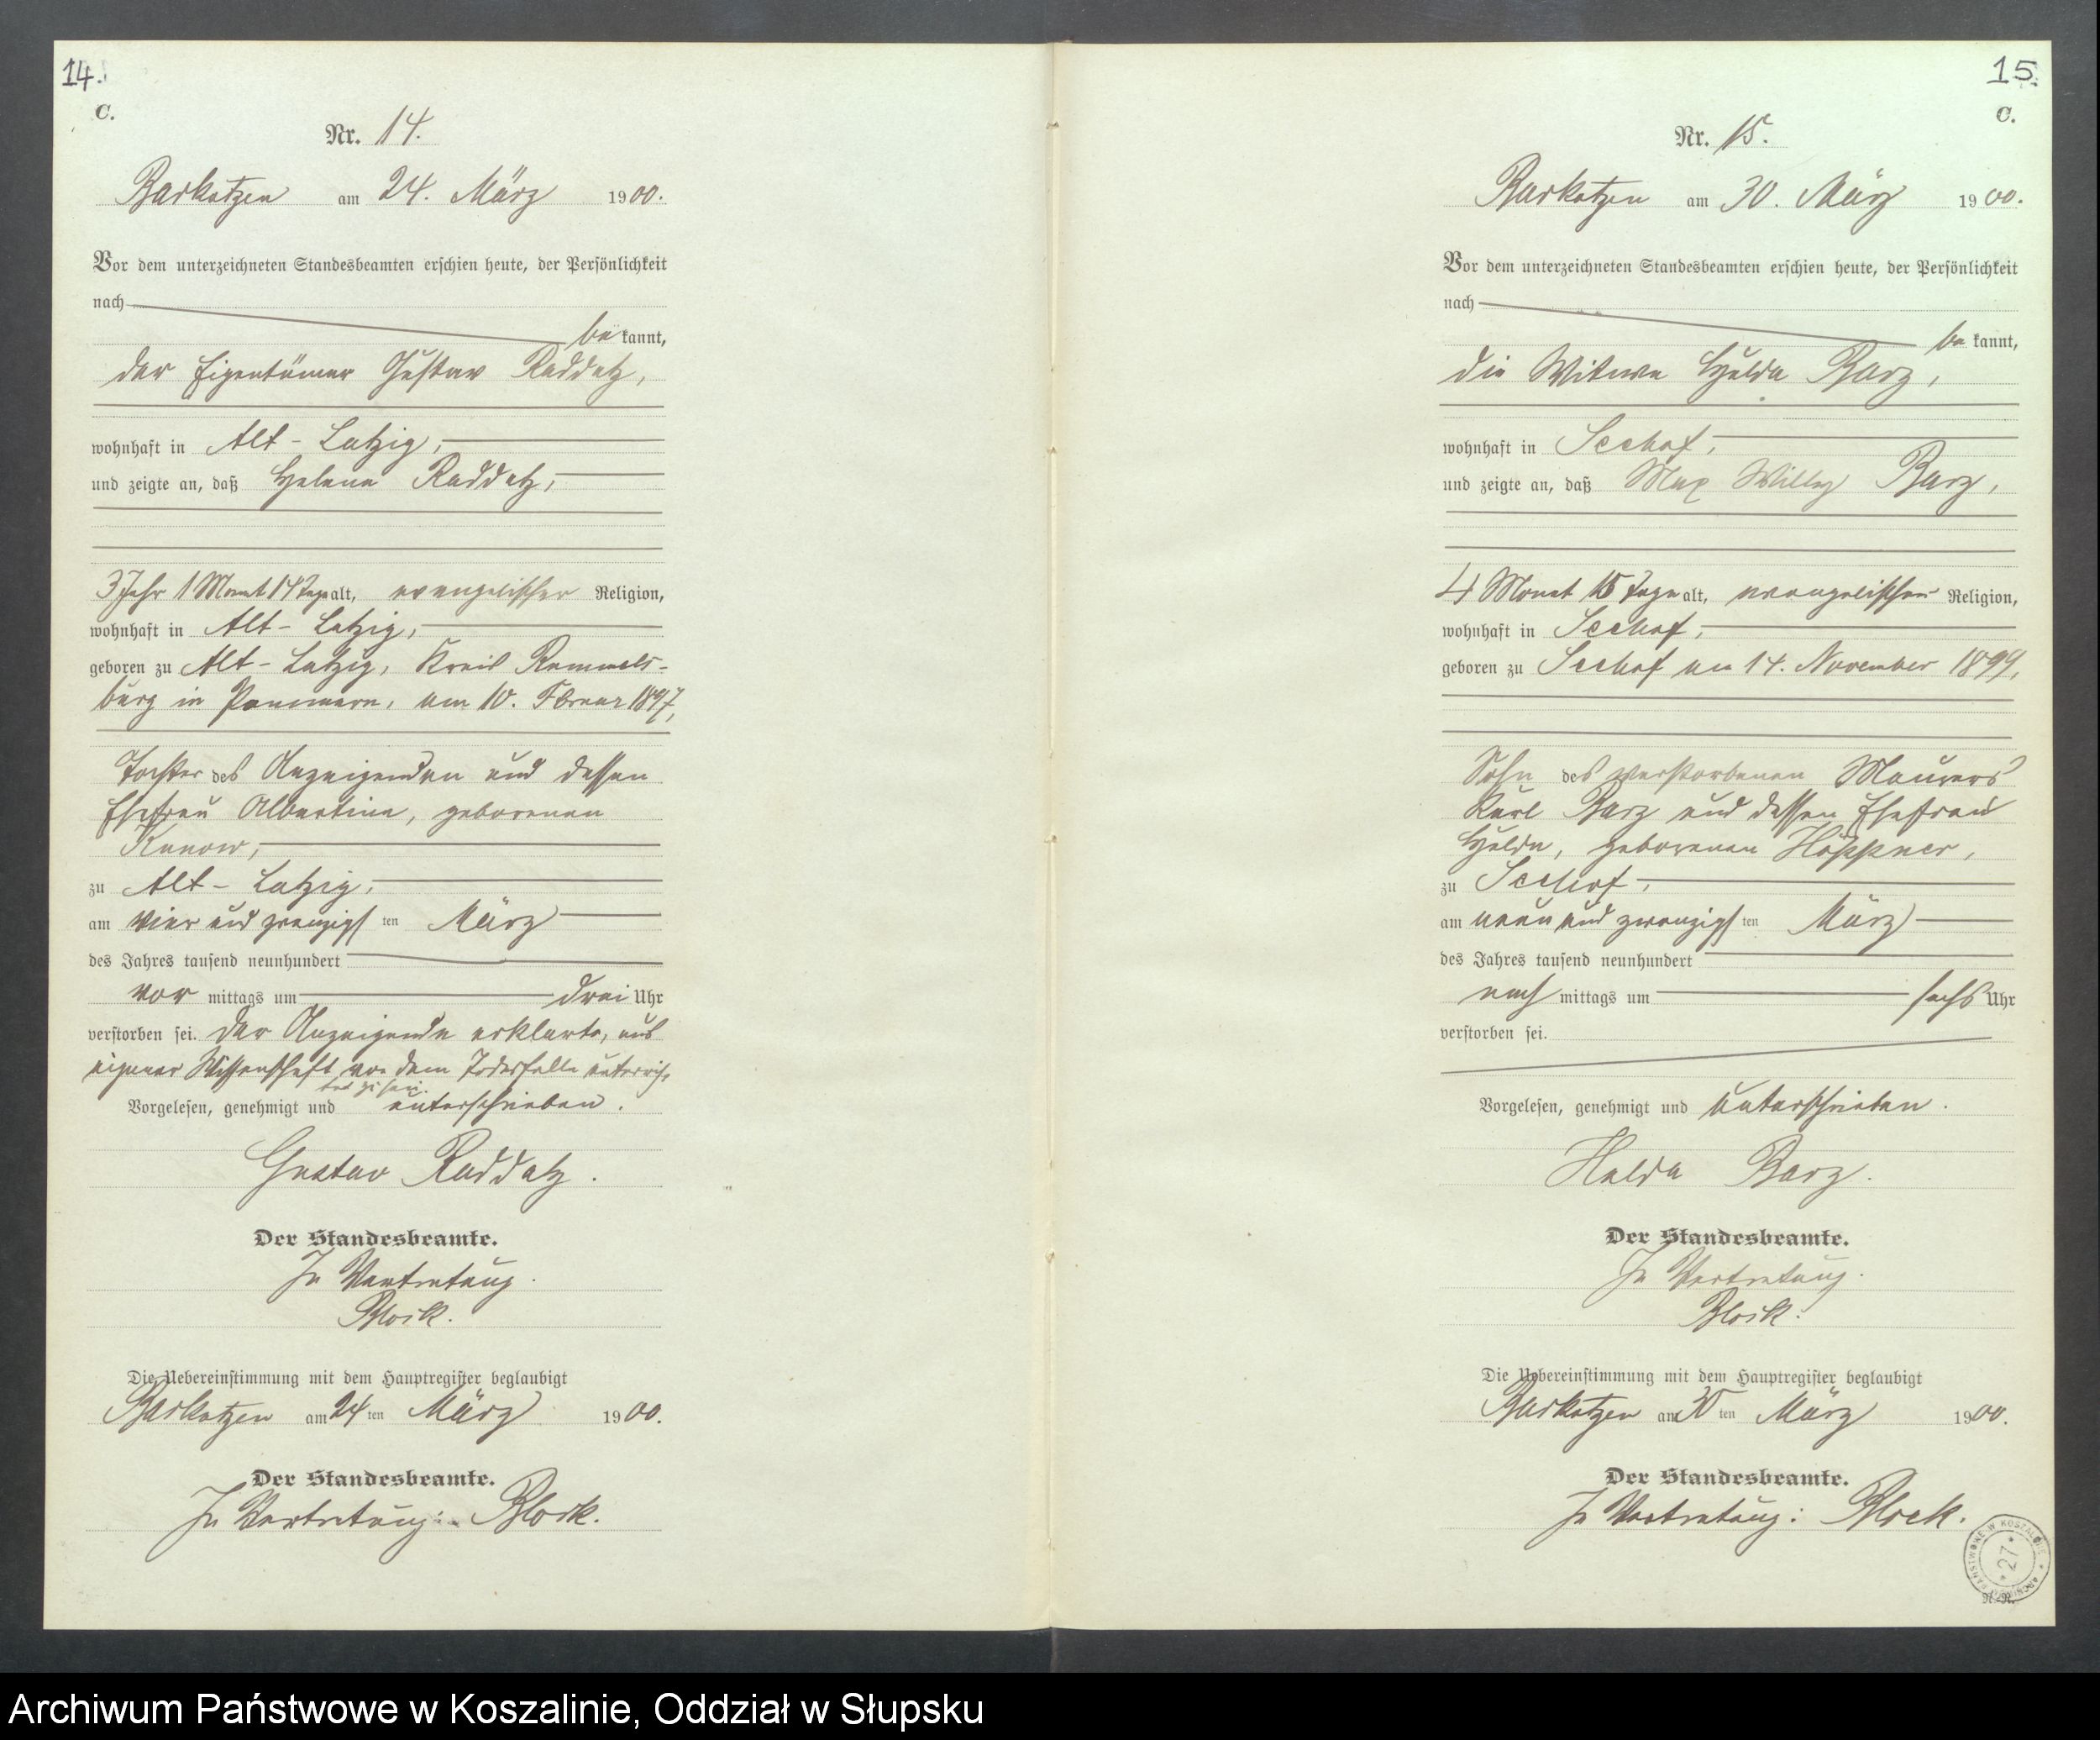 14.
C.
Nr. 14.
Barkotzen am 24. März 1900.
Vor dem unterzeichneten Standesbeamten erschien heute, der Persönlichkeit
nach
be kannt,
der Eigentümer Gustav Raddatz,
wohnhaft in Alt-Latzig,
und zeigte an, daß Helene Raddatz,
3 Jahr 1 Monat 14 Tage alt, evangelischer Religion,
wohnhaft in Alt-Latzig,
geboren zu Alt-Latzig, Kreis Rummels-
burg in Pommern, am 10. Februar 1897,
Tochter des Anzeigenden und dessen
Ehefrau Albertine, geborenen
Kunow,
zu Alt-Latzig,
am vier und zwanzigsten März
des Jahres tausend neunhundert
vor mittags um drei Uhr
verstorben sei. Der Anzeigende erklärte, aus
eigener Wissenschaft von dem Todesfalle unterrich-
tet zu sein.
Vorgelesen, genehmigt und unterschrieben.
Gustav Raddatz.
Der Standesbeamte.
In Vertretung.
Block.
Die Uebereinstimmung mit dem Hauptregister beglaubigt
Barkotzen am 24 ten März 1900.
Der Standesbeamte.
In Vertretung: Block.
15
C.
Nr. 15.
Barkotzen am 30. März 1900.
Vor dem unterzeichneten Standesbeamten erschien heute, der Persönlichkeit
nach
be kannt,
die Witwe Hulda Barz,
wohnhaft in Seehof,
und zeigte an, daß Max Willy Barz,
4 Monat 15 Tage alt, evangelischer Religion,
wohnhaft in Seehof,
geboren zu Seehof am 14. November 1899,
Sohn des verstorbenen Maurers
Karl Barz und dessen Ehefrau
Hulda, geborenen Höppner,
zu Seehof,
am neun und zwanzigsten März
des Jahres tausend neunhundert
nach mittags um sechs Uhr
verstorben sei.
Vorgelesen, genehmigt und unterschrieben.
Hulda Barz.
Der Standesbeamte.
In Vertretung.
Block.
Die Uebereinstimmung mit dem Hauptregister beglaubigt
Barkotzen am 30 ten März 1900.
Der Standesbeamte.
In Vertretung: Block.
27
Archiwum Państwowe w Koszalinie, Oddział w Słupsku